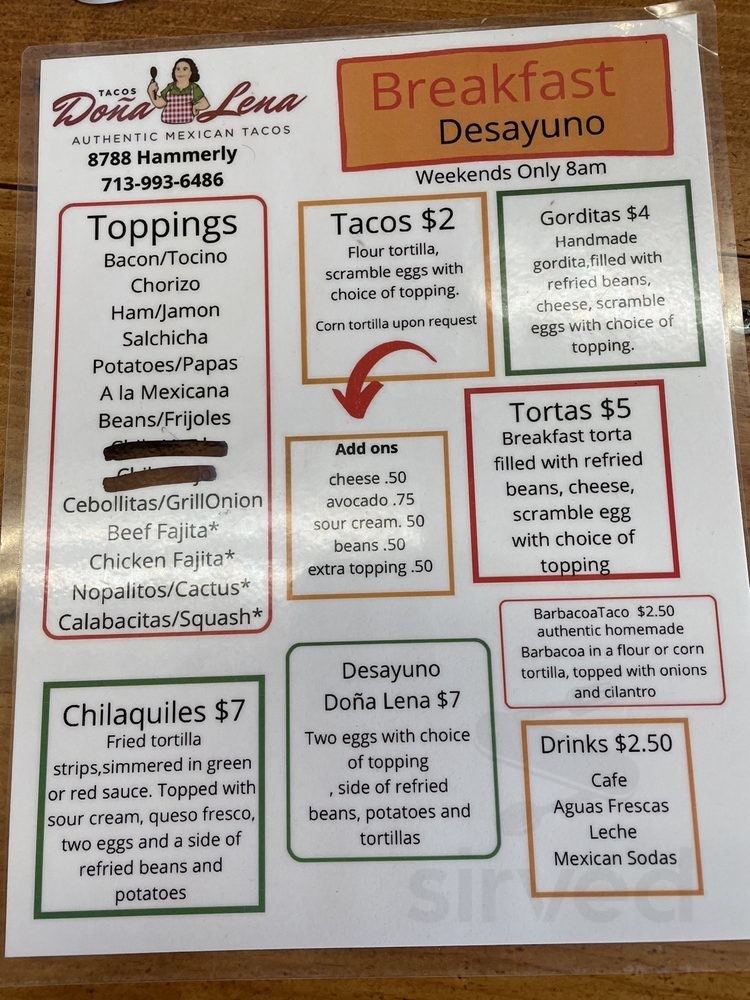 TACOS
Doña Lena
AUTHENTIC MEXICAN TACOS
8788 Hammerly
713-993-6486
Breakfast
Desayuno
Weekends Only 8am
Toppings
Bacon/Tocino
Chorizo
Ham/Jamon
Salchicha
Potatoes/Papas
A la Mexicana
Beans/Frijoles
Cebollitas/GrillOnion
Beef Fajita*
Chicken Fajita*
Nopalitos/Cactus*
Calabacitas/Squash*
Tacos $2
Flour tortilla,
scramble eggs with
choice of topping.
Corn tortilla upon request
Gorditas $4
Handmade
gordita,filled with
refried beans,
cheese, scramble
eggs with choice of
topping.
Add ons
cheese .50
avocado .75
sour cream. 50
beans .50
extra topping .50
Tortas $5
Breakfast torta
filled with refried
beans, cheese,
scramble egg
with choice of
topping
BarbacoaTaco $2.50
authentic homemade
Barbacoa in a flour or corn
tortilla, topped with onions
and cilantro
Chilaquiles $7
Fried tortilla
strips,simmered in green
or red sauce. Topped with
sour cream, queso fresco,
two eggs and a side of
refried beans and
potatoes
Desayuno
Doña Lena $7
Two eggs with choice
of topping
, side of refried
beans, potatoes and
tortillas
Drinks $2.50
Cafe
Aguas Frescas
Leche
Mexican Sodas
sirved